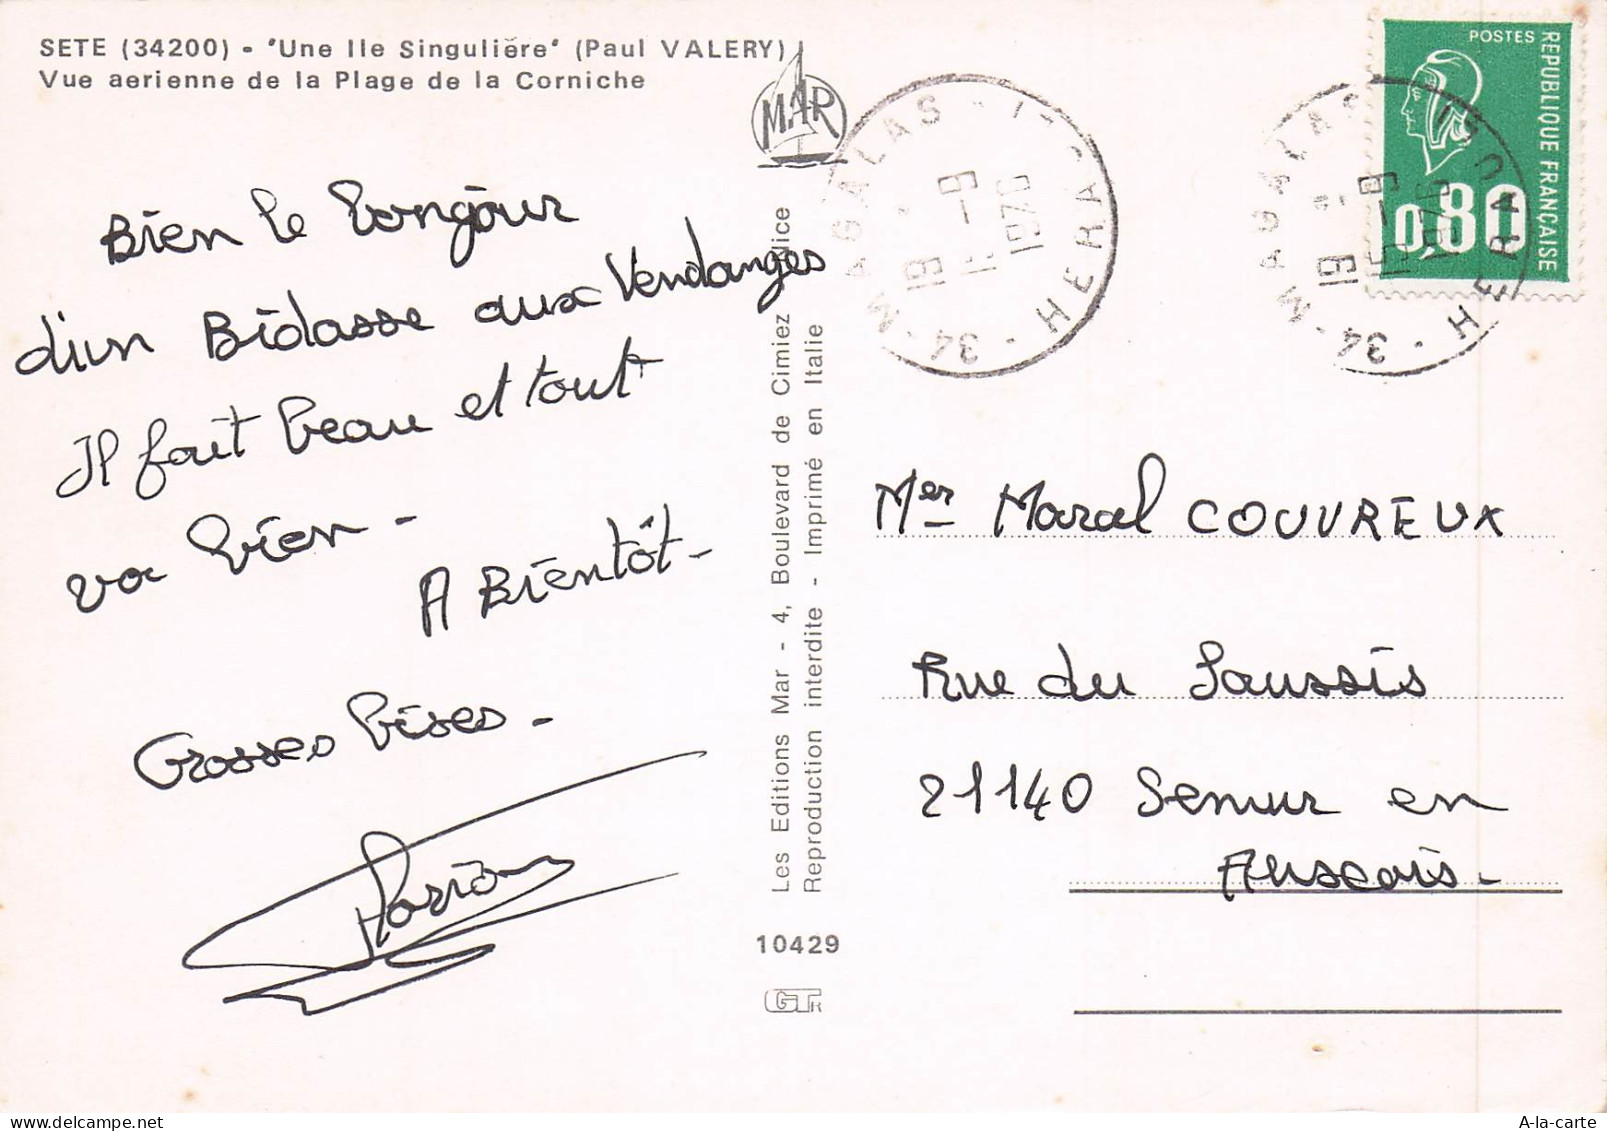 SETE (34200) - "Une Ile Singulière" (Paul VALERY)
Vue aerienne de la Plage de la Corniche
MAR
Bien le bonjour
d'un Bidasse aux Vendanges
Il fait beau et tout
va bien -
A Bientôt -
Grosses bises -
Les Editions Mar - 4, Boulevard de Cimiez Nice
Reproduction interdite - Imprimé en Italie
10429
GT
34 - MAGALAS
HERAULT
19
1976
POSTES
REPUBLIQUE FRANÇAISE
0,80
34 - MAGALAS
HERAULT
19
1976
Mer Marcal COUVREUX
Rue du Saussis
21140 Semur en
Auxois -
A-la-carte